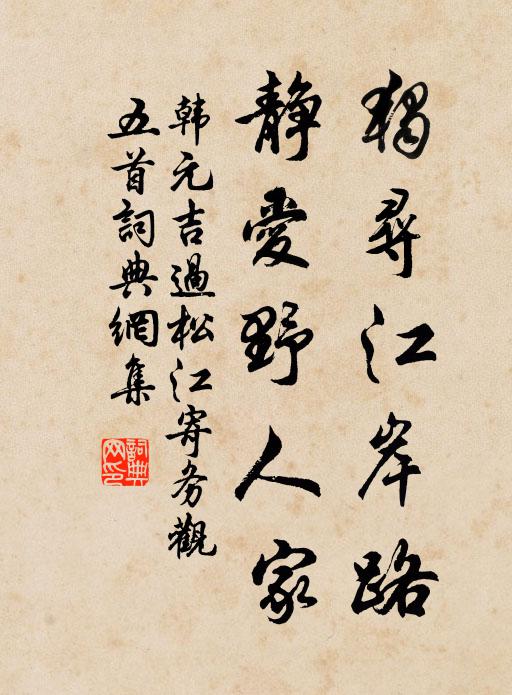 獨尋江岸路
靜愛野人家
韩元吉過松江寄务觀
五首詞典網集
詞典
网印